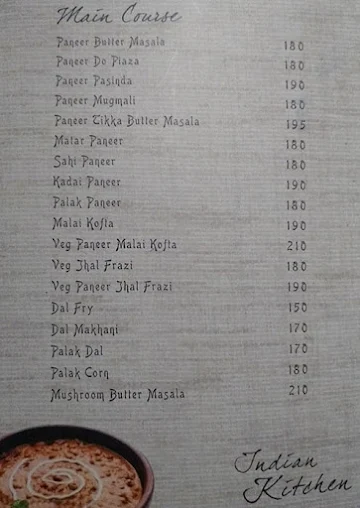 Main Course
Paneer Butter Masala 180
Paneer Do Plaza 180
Paneer Pasinda 190
Paneer Mugmali 180
Paneer Tikka Butter Masala 195
Matar Paneer 180
Sahi Paneer 180
Kadai Paneer 190
Palak Paneer 180
Malai Kofta 190
Veg Paneer Malai Kofta 210
Veg Jhal Frazi 180
Veg Paneer Jhal Frazi 190
Dal Fry 150
Dal Makhani 170
Palak Dal 170
Palak Corn 180
Mushroom Butter Masala 210
Indian
Kitchen